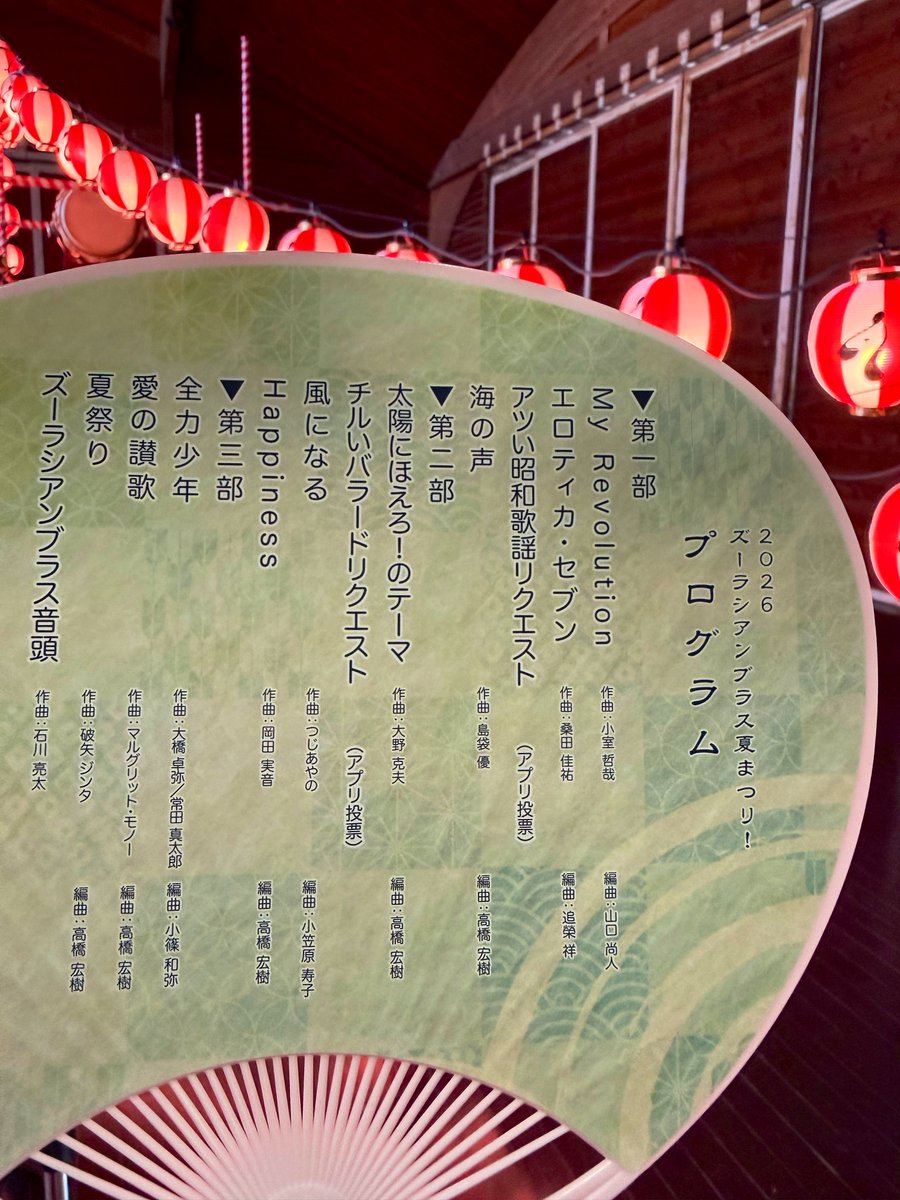 2026
ズーラシアンブラス夏まつり!
プログラム
▼第一部
My Revolution 作曲:小室 哲哉 編曲:山口 尚人
エロティカ・セブン 作曲:桑田 佳祐 編曲:追榮 祥
アツい昭和歌謡リクエスト (アプリ投票)
海の声 作曲:島袋 優 編曲:高橋 宏樹
▼第二部
太陽にほえろ!のテーマ 作曲:大野 克夫 編曲:高橋 宏樹
チルいバラードリクエスト (アプリ投票)
風になる 作曲:つじあやの 編曲:小笠原 寿子
Happiness 作曲:岡田 実音 編曲:高橋 宏樹
▼第三部
全力少年 作曲:大橋 卓弥/常田 真太郎 編曲:小篠 和弥
愛の讃歌 作曲:マルグリット・モノー 編曲:高橋 宏樹
夏祭り 作曲:破矢 ジンタ 編曲:高橋 宏樹
ズーラシアンブラス音頭 作曲:石川 亮太